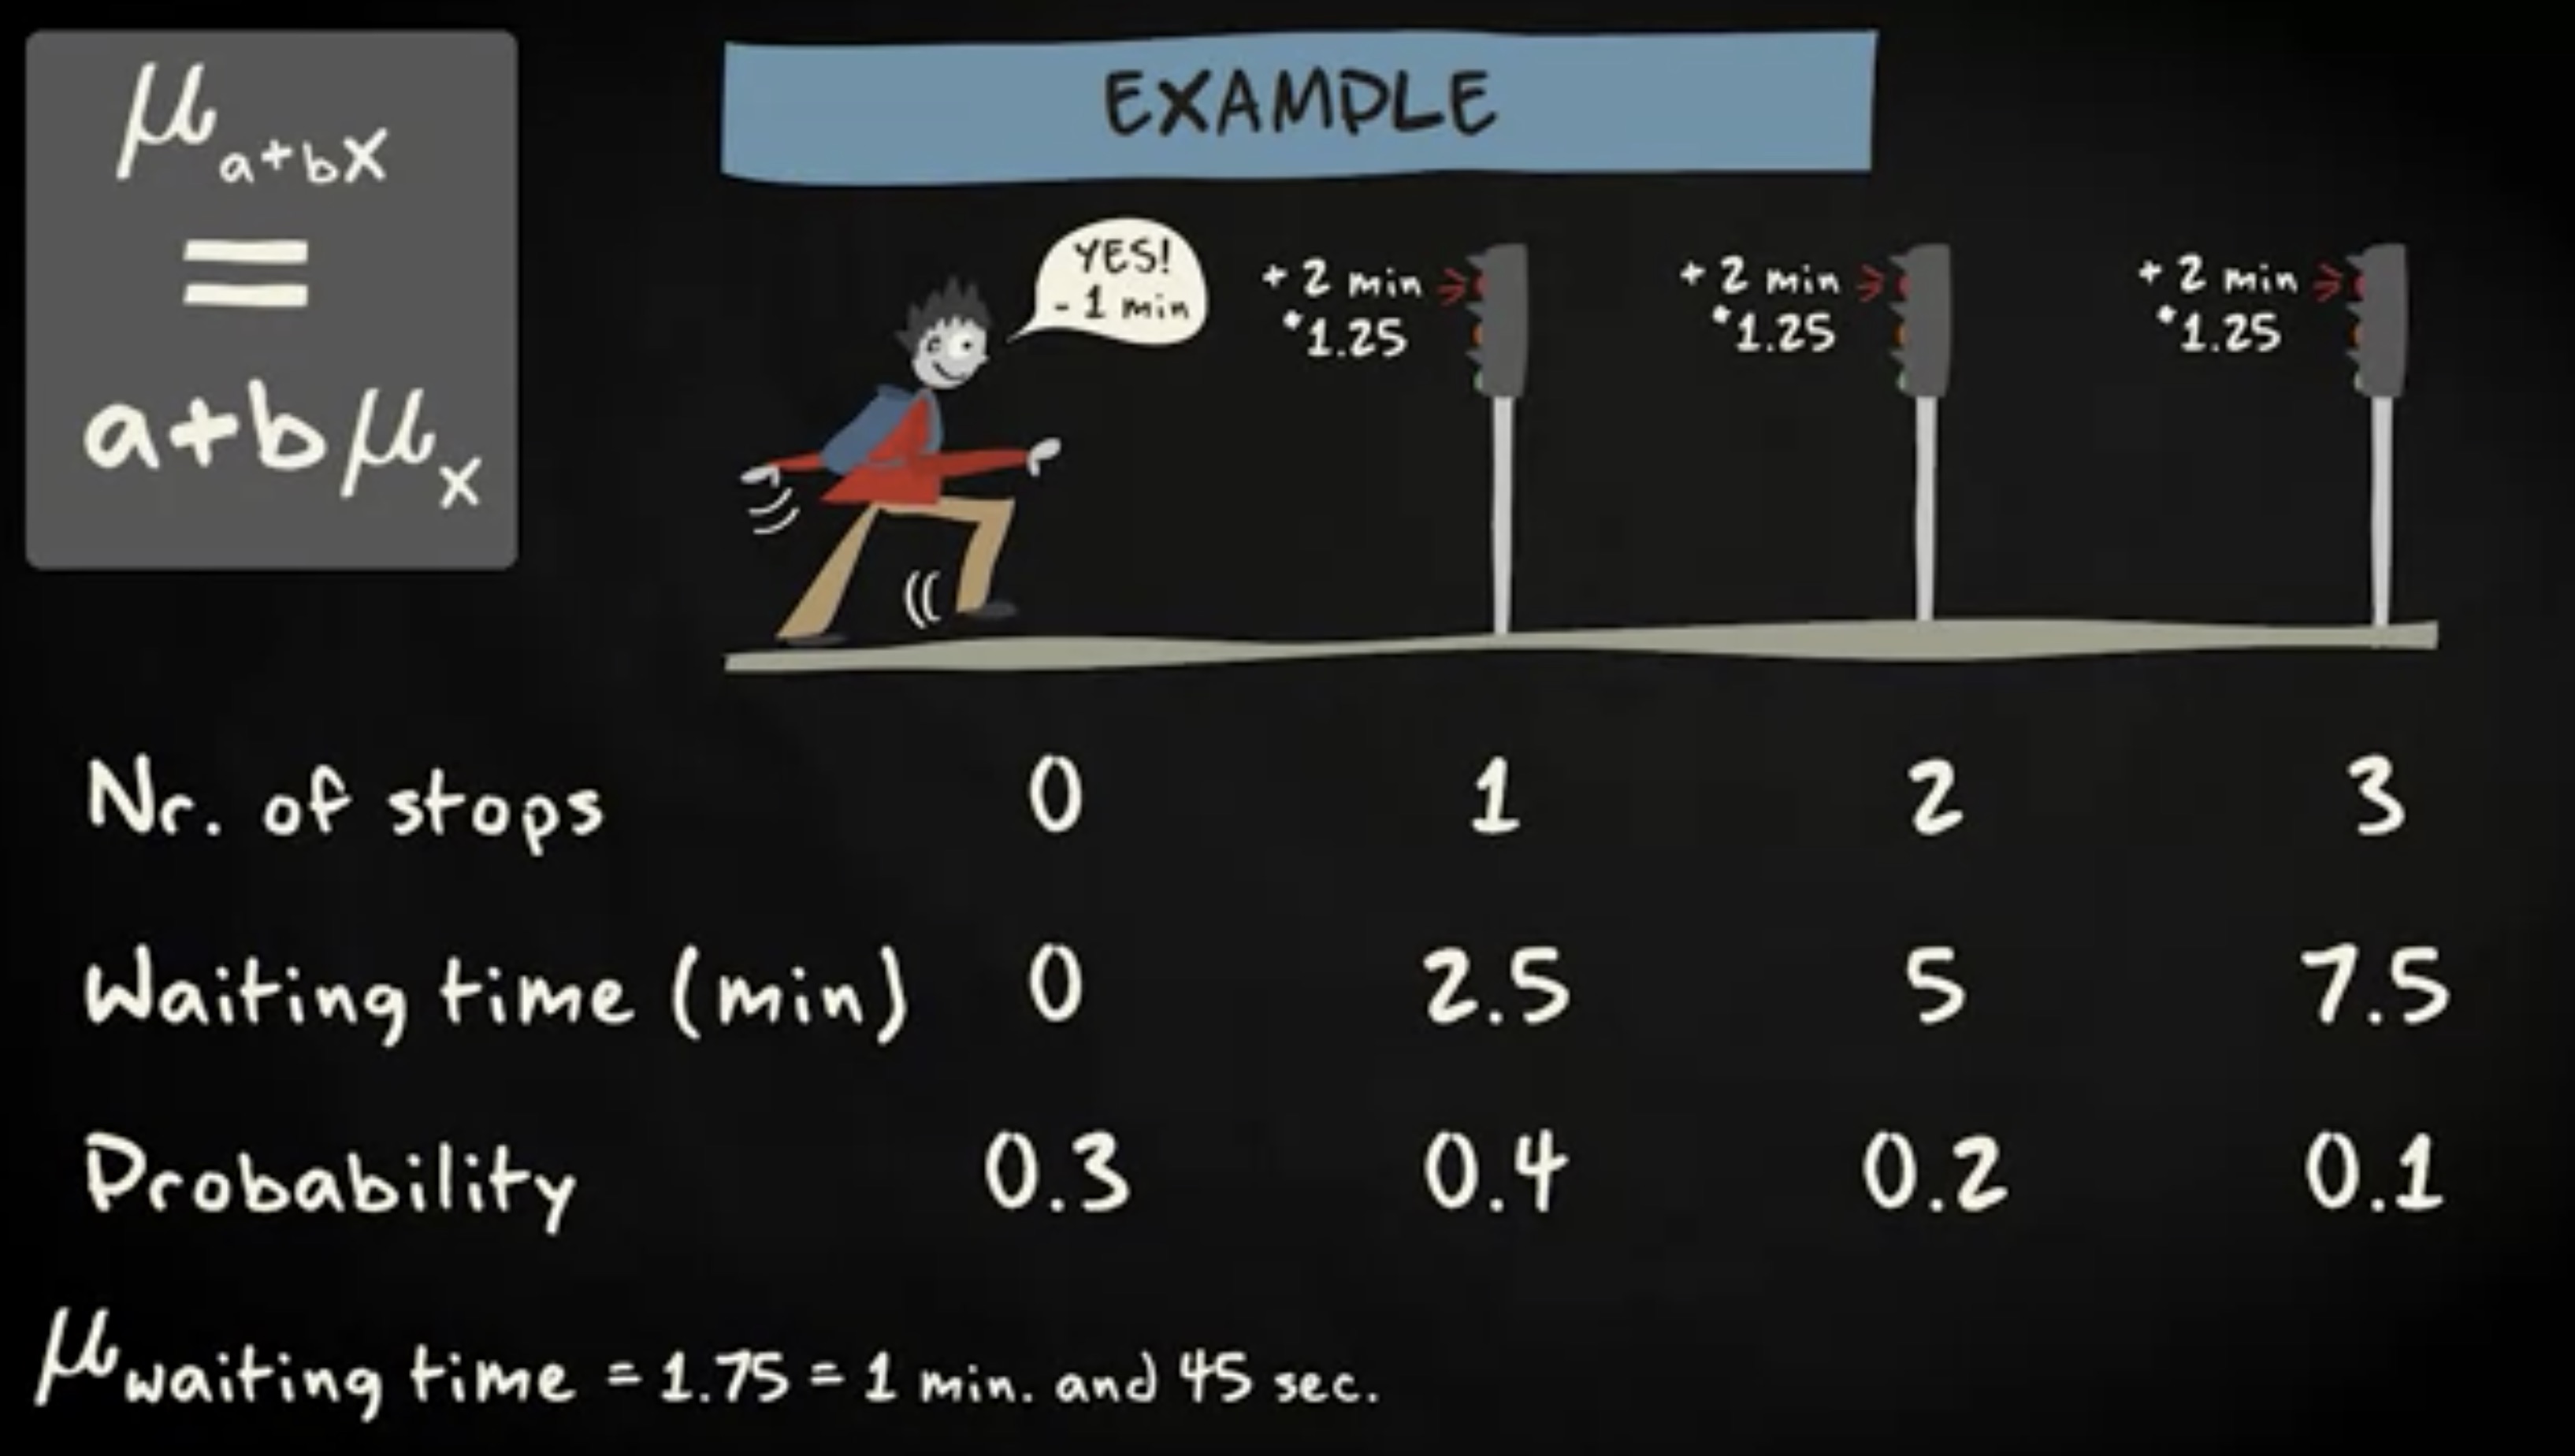 μa+bX
=
a+bμx
EXAMPLE
YES!
- 1 min
+ 2 min
*1.25
+ 2 min
*1.25
+ 2 min
*1.25
Nr. of stops 0 1 2 3
Waiting time (min) 0 2.5 5 7.5
Probability 0.3 0.4 0.2 0.1
μwaiting time = 1.75 = 1 min. and 45 sec.